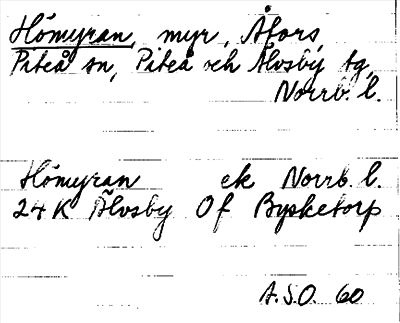 Hömyran, myr, Åfors,
Piteå sn, Piteå och Älvsby tg,
Norrb. l.
Hömyran ek Norrb. l.
24 K Älvsby Of Bysketorp
A.S.O. 60